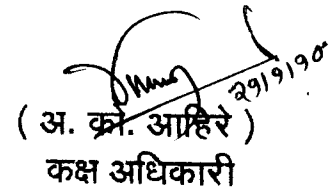 २१/९/९०
( अ. क्रो. आहिरे )
कक्ष अधिकारी